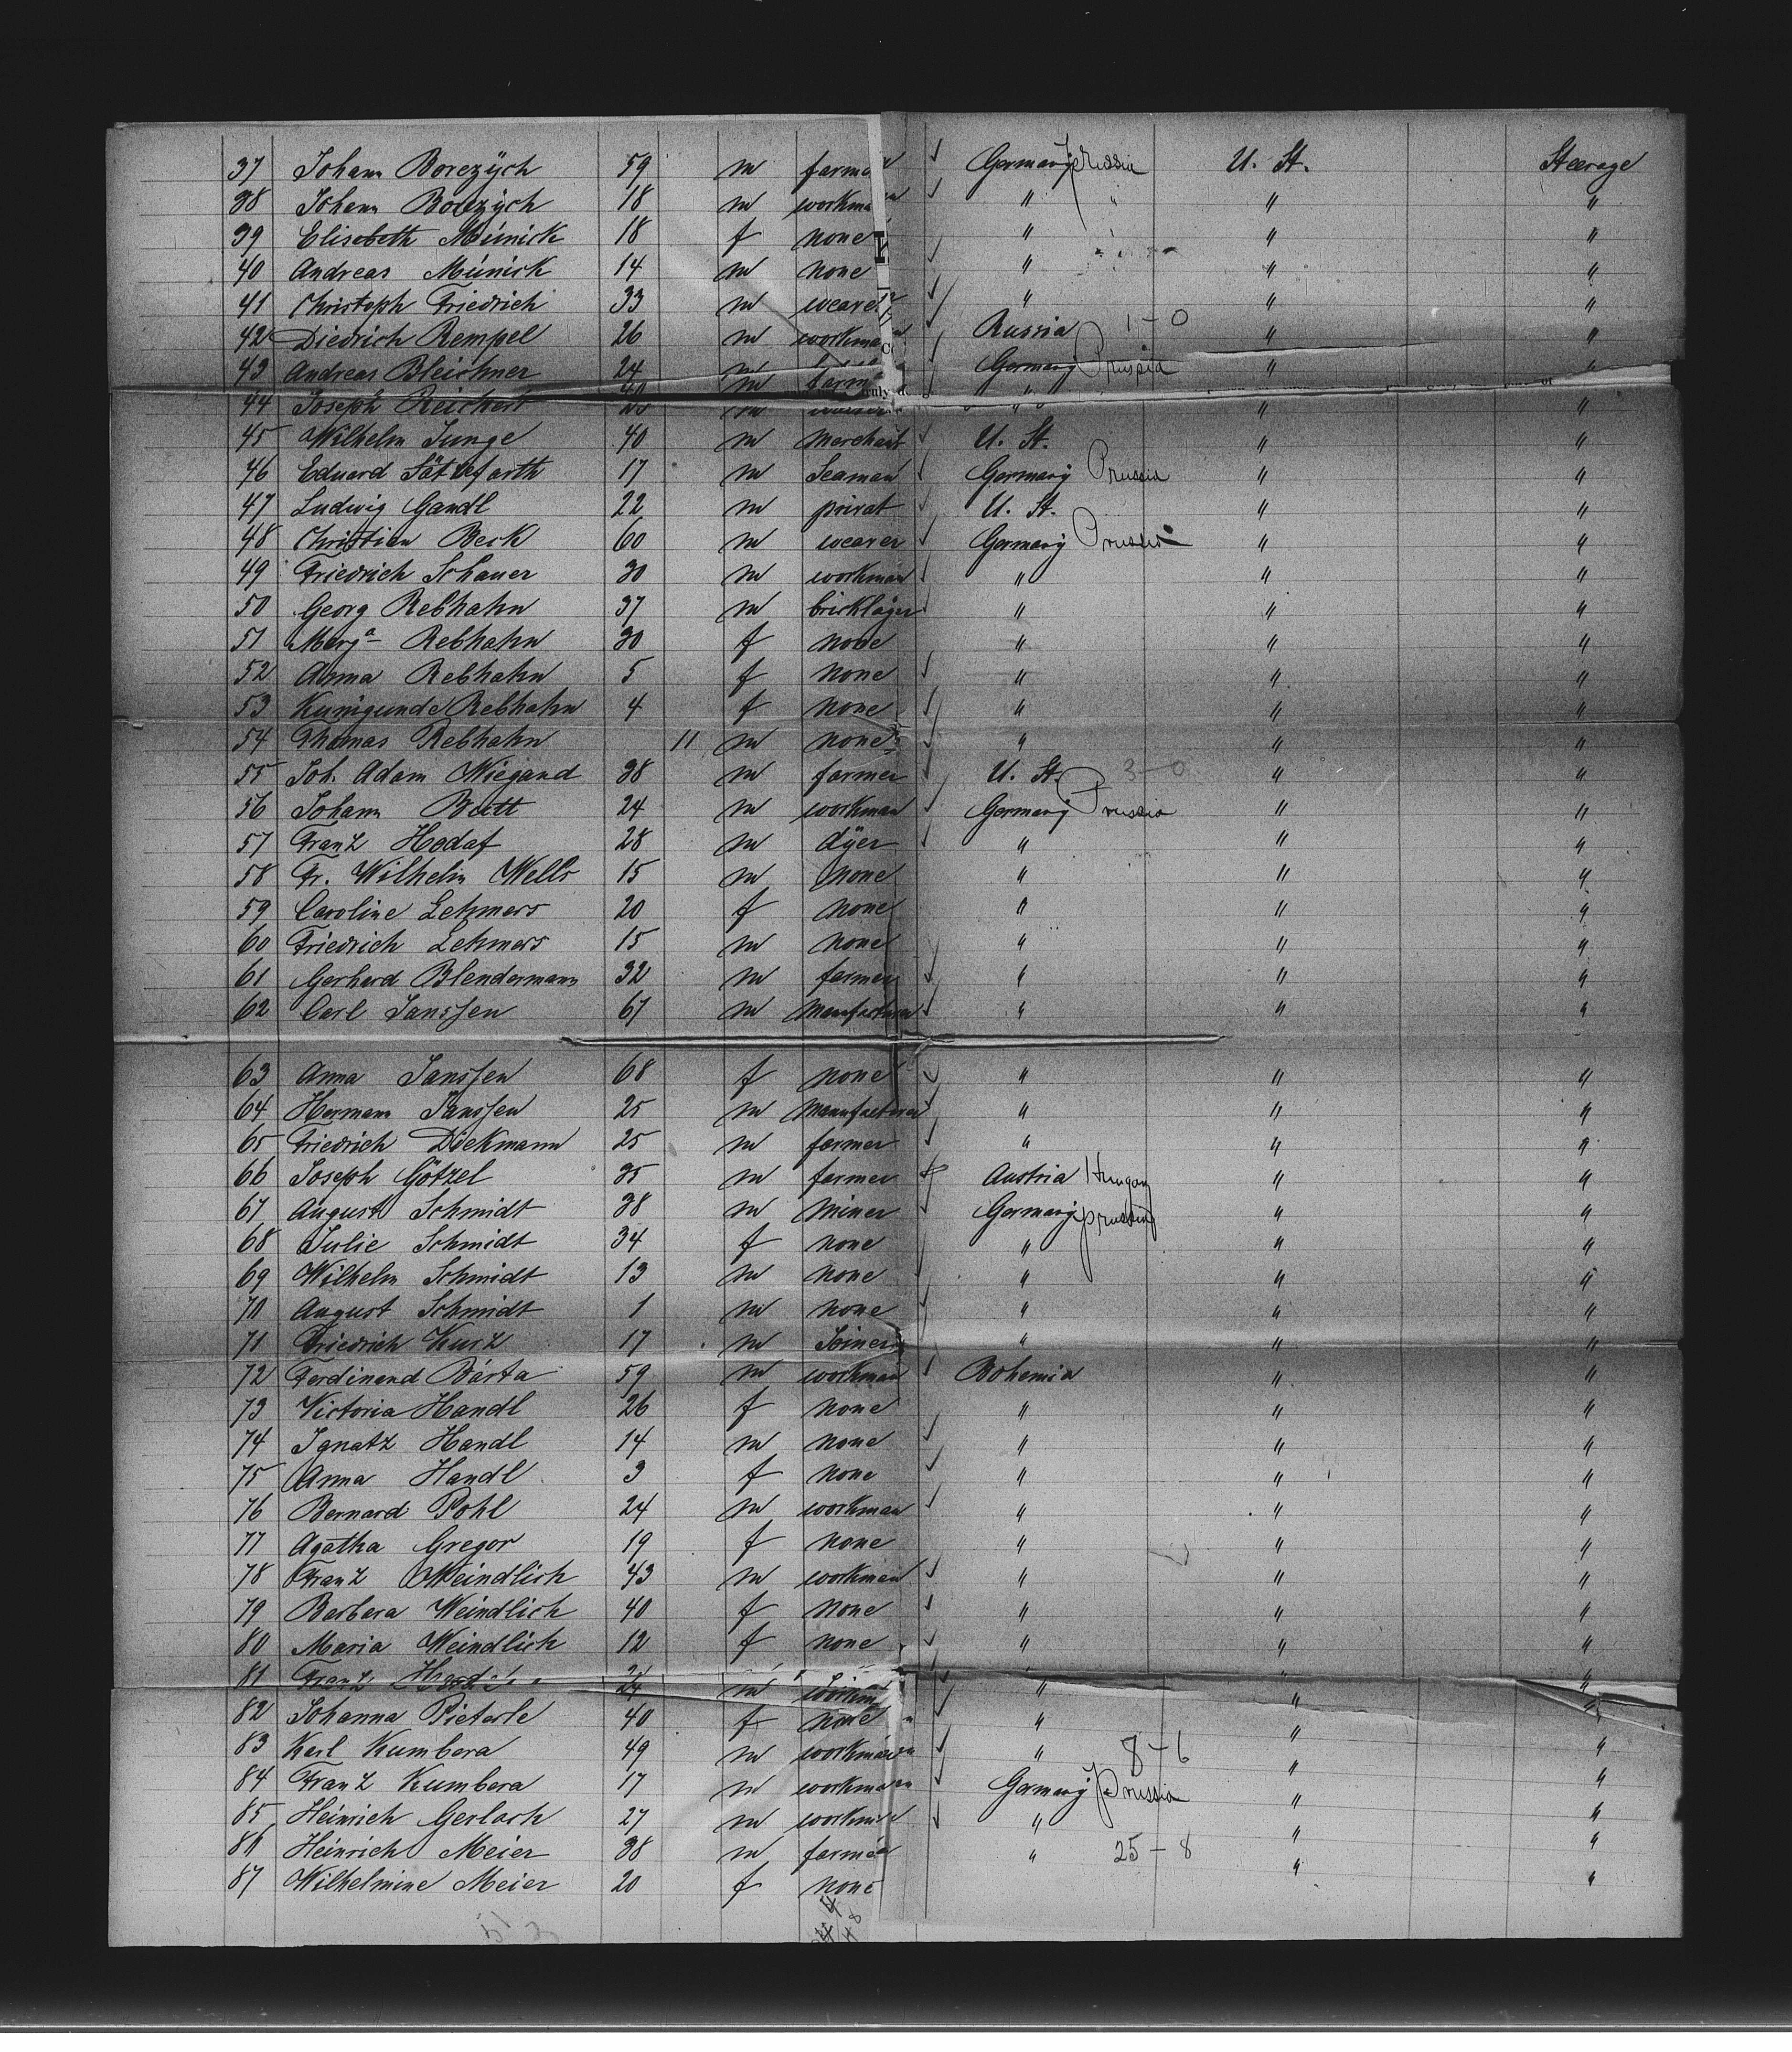 37 Johann Borczÿch 59 m farmer Germany Prussia U. St. Steerage
38 Johann Borczÿch 18 m workman " " " "
39 Elisabeth Münick 18 f none " " "
40 Andreas Münick 14 m none " " "
41 Christoph Friedrich 33 m weaver " " "
42 Diedrich Rempel 26 m workman Russia 1-0 "
43 Andreas Bleichner 24 m Germany Prussia " "
40 m farm truly d of
44 Joseph Reichert m " " "
45 Wilhelm Junge 40 m merchant U. St. " "
46 Eduard 17 m Seaman Germany Prussia " "
47 Ludwig Gandl 22 m privat U. St. " "
48 Christian Beck 60 m weaver Germany Prussia " "
49 Friedrich Schauer 30 m workman " " "
50 Georg Rebhahn 37 m bricklayer " " "
51 Marga Rebhahn 30 f none " " "
52 Anna Rebhahn 5 f none " " "
53 Kunigunde Rebhahn 4 f none " " "
54 Thomas Rebhahn 11 m none " " "
55 Joh. Adam Wiegand 38 m farmer U. St. 3-0 " "
56 Johann Butt 24 m workman Germany Prussia " "
57 Franz Hodaf 28 m dÿer " " "
58 Fr. Wilhelm Wells 15 m none " " "
59 Caroline Lehmers 20 f none " " "
60 Friedrich Lehmers 15 m none " " "
61 Gerhard Blendermann 32 m farmer " " "
62 Carl Janssen 67 m manufacturer " " "
63 Anna Janssen 68 f none " " "
64 Hermann Janssen 25 m manufacturer " " "
65 Friedrich Dieckmann 25 m farmer " " "
66 Joseph Götzel 35 m farmer Austria Hungary " "
67 August Schmidt 38 m miner Germany Prussia " "
68 Julie Schmidt 34 f none " " "
69 Wilhelm Schmidt 13 m none " " "
70 August Schmidt 1 m none " " "
71 Friedrich Kurz 17 m Joiner " " "
72 Ferdinand Bárta 59 m workman Bohemia " "
73 Victoria Handl 26 f none " " "
74 Ignatz Handl 14 m none " " "
75 Anna Handl 3 f none " " "
76 Bernard Pohl 24 m workman " " "
77 Agatha Gregor 19 f none " " "
78 Franz Weindlich 43 m workman " " "
79 Barbara Weindlich 40 f none " " "
80 Maria Weindlich 12 f none " " "
81 Franz 24 m workm " " "
82 Johanna Pieterle 40 f none " " "
83 Karl Kumbera 49 m workman " 8-6 " "
84 Franz Kumbera 17 m workman Germany Prussia " "
85 Heinrich Gerlach 27 m workman " " "
86 Heinrich Meier 38 m farmer " 25-8 " "
87 Wilhelmine Meier 20 f none " "